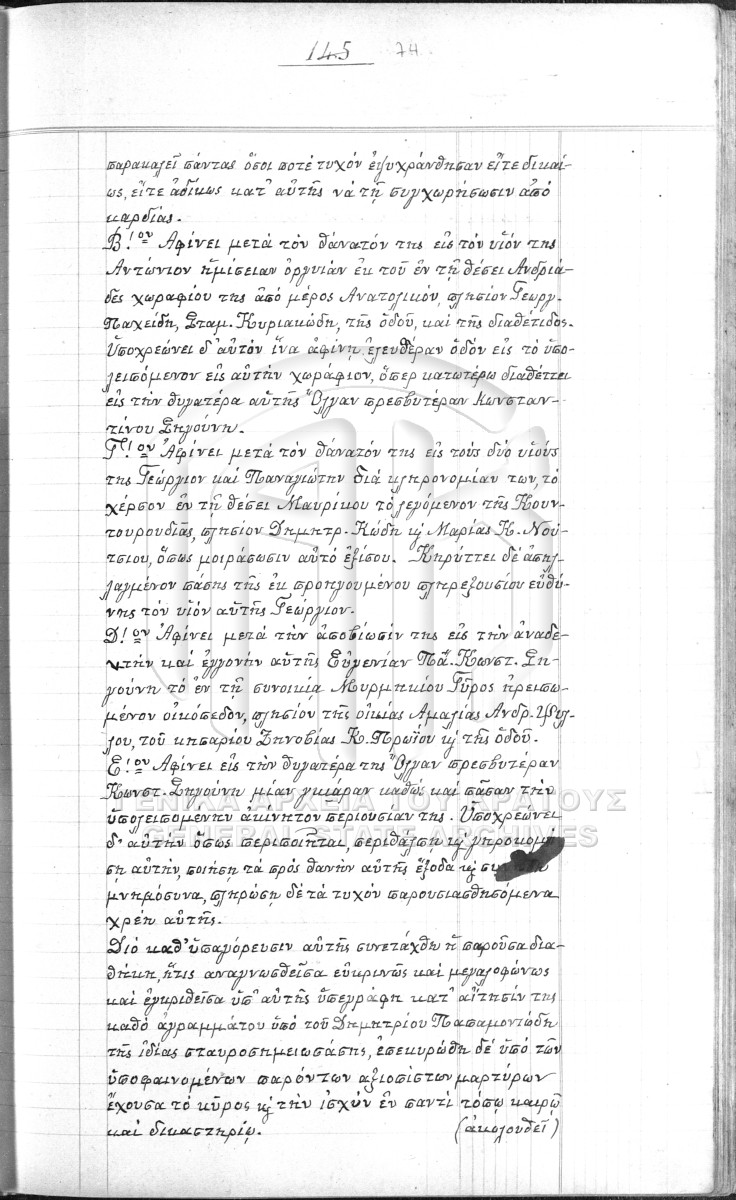 145 74
παρακαλεῖ πάντας ὅσοι ποτέ τυχόν ἐψυχράνθησαν εἴτε δικαί-
ως, εἴτε ἀδίκως κατ' αὐτῆς νά τῇ συγχωρήσωσιν ἀπό
καρδίας.
Β!ον Ἀφίνει μετά τόν θάνατόν της εἰς τόν υἱόν της
Ἀντώνιον ἡμίσειαν ὀργυιάν ἐκ τοῦ ἐν τῇ θέσει Ἀνδριά-
δες χωραφίου της ἀπό μέρος Ἀνατολικόν, πλησίον Γεωργ.
Παχείδη, Σταμ. Κυριακώδη, τῆς ὁδοῦ, καί τῆς διαθέτιδος.
Ὑποχρεώνει δ' αὐτόν ἵνα ἀφίνῃ ἐλευθέραν ὁδόν εἰς τό ὑπο-
λειπόμενον εἰς αὐτήν χωράφιον, ὅπερ κατωτέρω διαθέττει
εἰς τήν θυγατέρα αὑτῆς Ὄλγαν πρεσβυτέραν Κωνσταν-
τίνου Σηγούνη.
Γ!ον Ἀφίνει μετά τόν θάνατόν της εἰς τούς δύο υἱούς
της Γεώργιον καί Παναγιώτην διά κληρονομίαν των, τό
χέρσον ἐν τῇ θέσει Μαυρίκου τό λεγόμενον τῆς Κουν-
τουρουδιᾶς, πλησίον Δημητρ. Κώδη κ̣ Μαρίας Κ. Νού-
τσιου, ὅπως μοιράσωσιν αὐτό ἐξίσου. Κηρύττει δέ ἀπηλ-
λαγμένον πάσης τῆς ἐκ προηγουμένου πληρεξουσίου εὐθύ-
νης τόν υἱόν αὑτῆς Γεώργιον.
Δ!ον Ἀφίνει μετά τήν ἀποβίωσίν της εἰς τήν ἀναδε-
κτήν καί ἐγγονήν αὑτῆς Εὐγενίαν Πᾶ. Κωνστ. Ση-
γούνη τό ἐν τῇ συνοικίᾳ Μυρμηκίου Γῦρος ἠρειπω-
μένον οἰκόπεδον, πλησίον τῆς οἰκίας Ἀμαλίας Ἀνδρ. Ψύλ-
λου, τοῦ κηπαρίου Ζηνοβίας Κ. Πρωΐου κ̣ τῆς ὁδοῦ.
Ε!ον Ἀφίνει εἰς τήν θυγατέρα της Ὄλγαν πρεσβυτέραν
Κωνστ. Σηγούνη μίαν γκιάραν καθώς καί πᾶσαν τήν
ὑπολειπομένην ἀκίνητον περιουσίαν της. Ὑποχρεώνει
δ' αὐτήν ὅπως περιποιῆται, περιθάλπῃ κ̣ γηροκομή-
σῃ αὐτήν, ποιήσῃ τά πρός θανήν αὐτῆς ἔξοδα κ̣ συνήθη
μνημόσυνα, πληρώσῃ δέ τά τυχόν παρουσιασθησόμενα
χρέη αὐτῆς.
Διό καθ' ὑπαγόρευσιν αὐτῆς συνετάχθη ἡ παροῦσα δια-
θήκη, ἥτις ἀναγνωσθεῖσα εὐκρινῶς καί μεγαλοφώνως
καί ἐγκριθεῖσα ὑπ' αὐτῆς ὑπεγράφη κατ' αἴτησίν της
καθό ἀγραμμάτου ὑπό τοῦ Δημητρίου Παπαμοντιώδη
τῆς ἰδίας σταυροσημειωσάσης, ἐπεκυρώθη δέ ὑπό τῶν
ὑποφαινομένων παρόντων ἀξιοπίστων μαρτύρων
ἔχουσα τό κῦρος κ̣ τήν ἰσχύν ἐν παντί τόπῳ καιρῷ
καί δικαστηρίῳ. (ἀκολουθεῖ)
ΓΕΝΙΚΑ ΑΡΧΕΙΑ ΤΟΥ ΚΡΑΤΟΥΣ
GENERAL STATE ARCHIVES